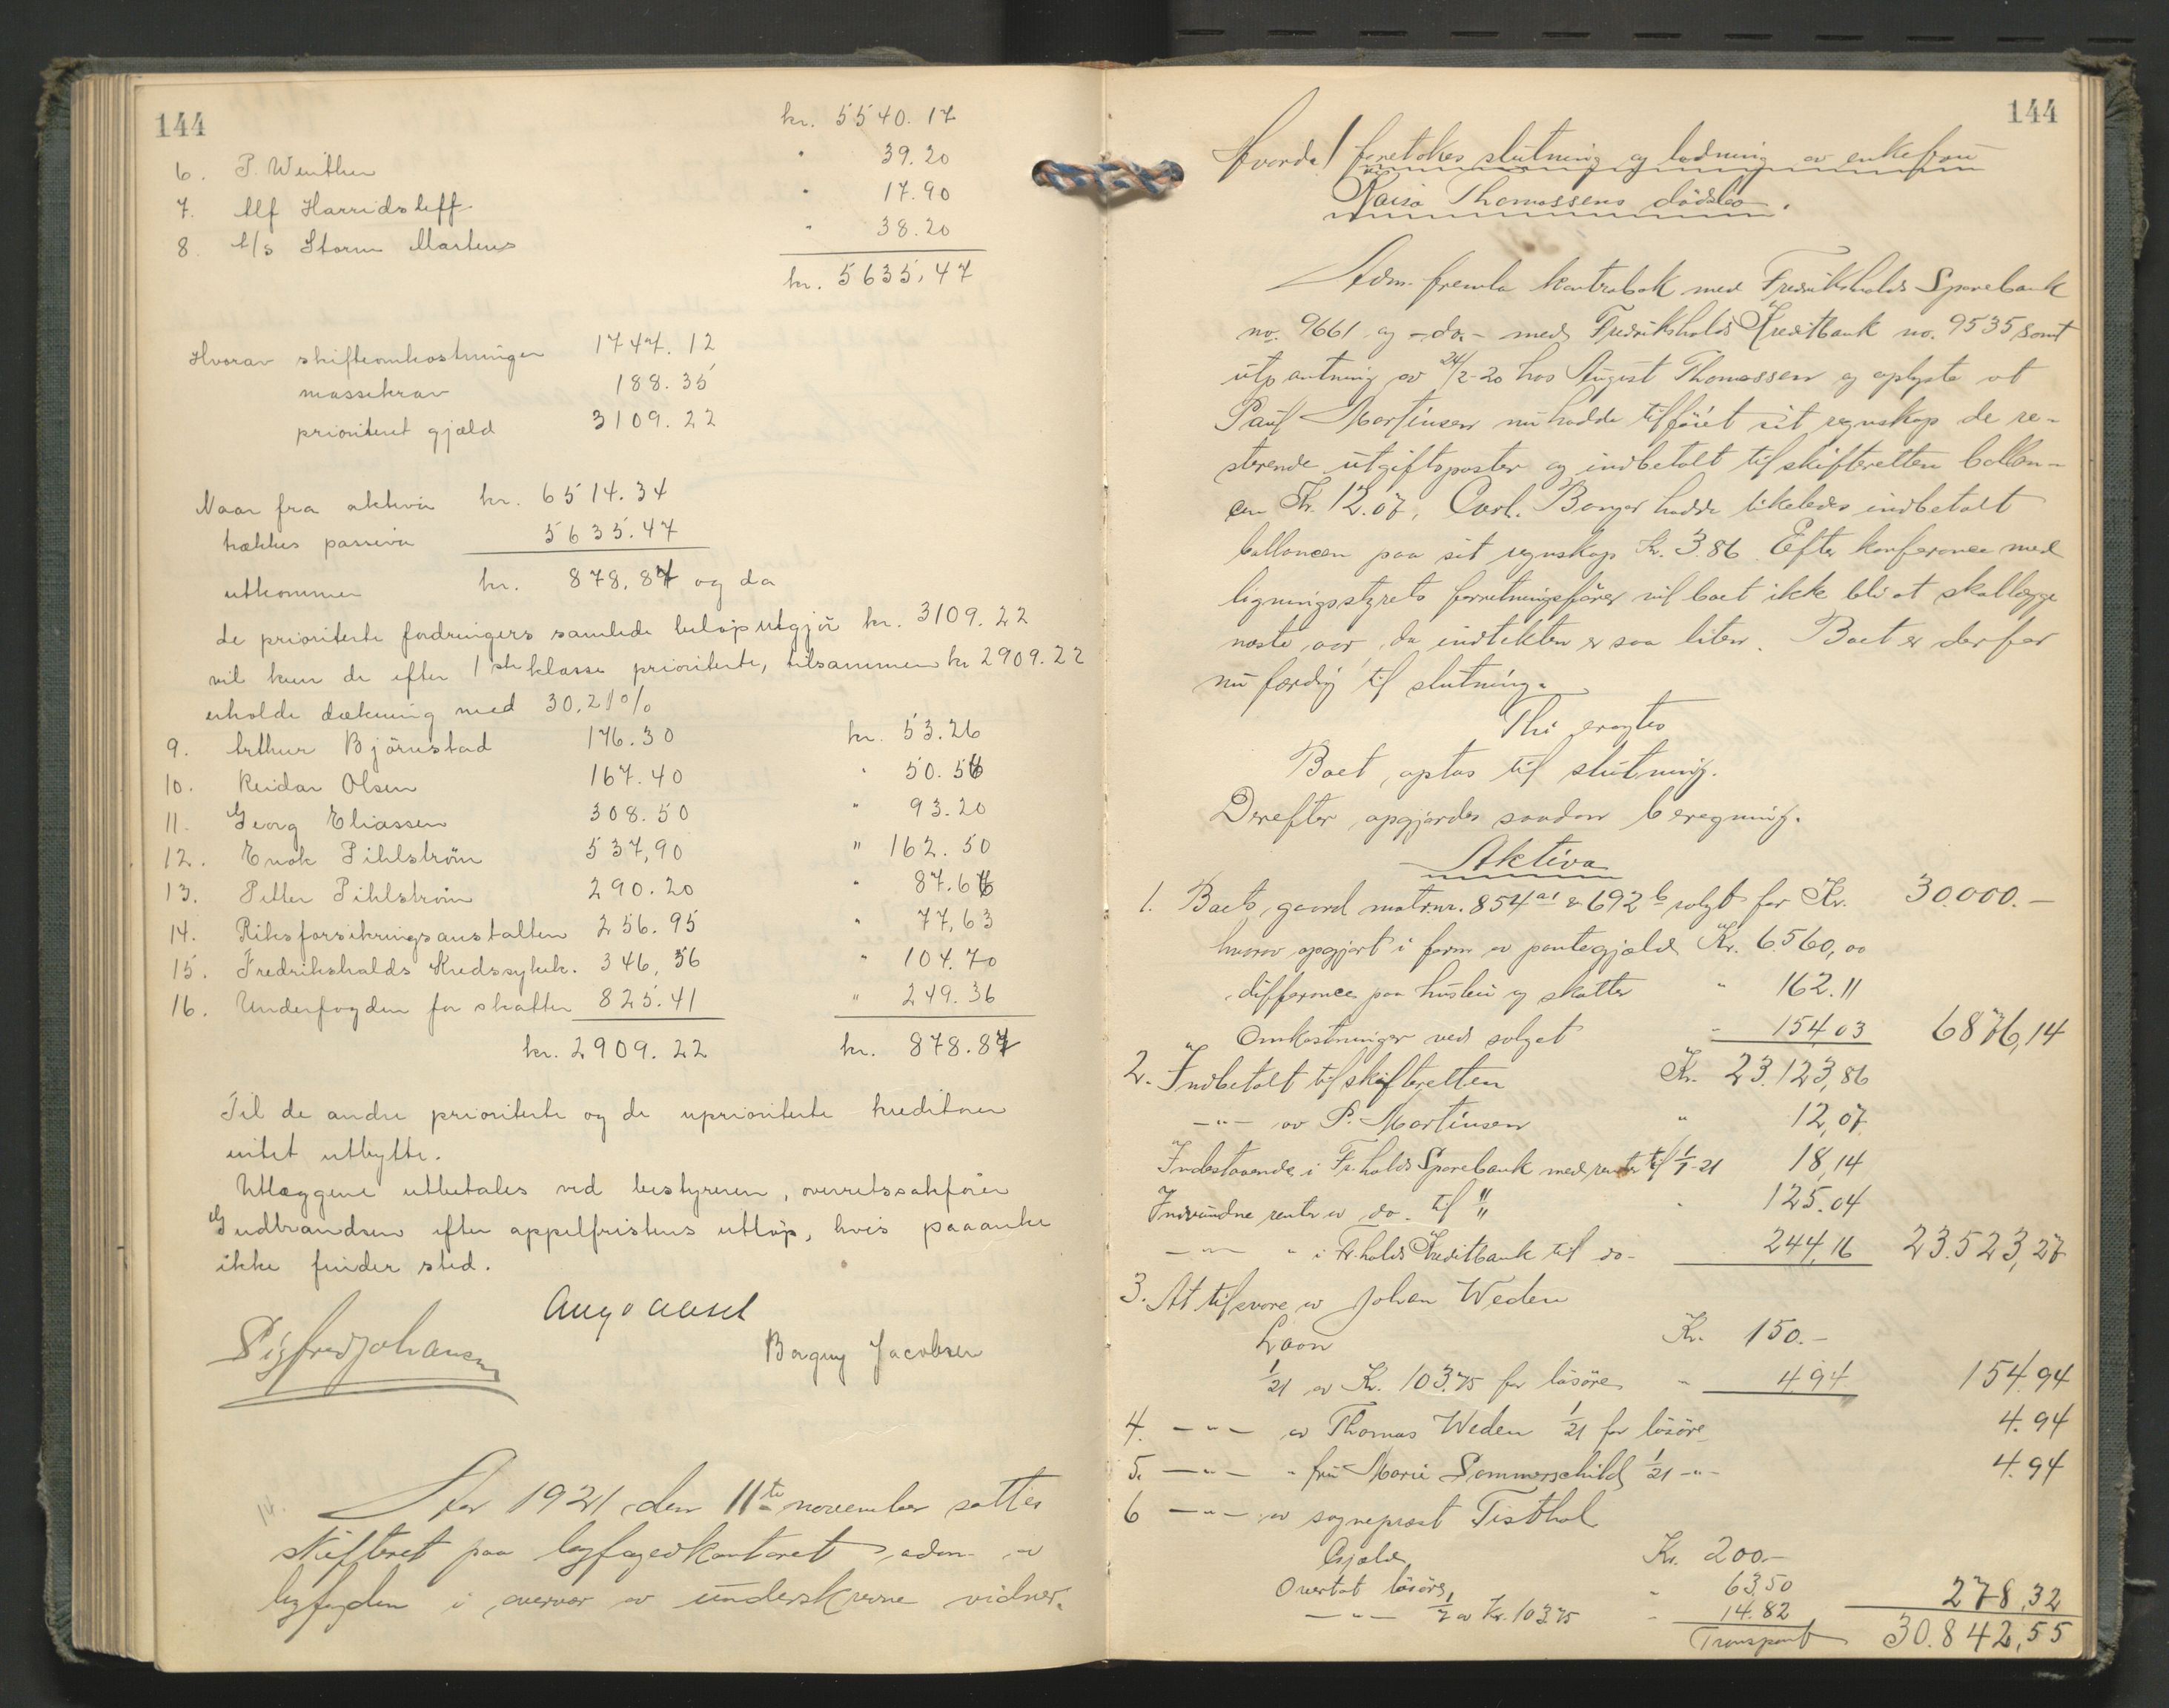 144
kr. 5540.17
6. P. Winther " 39.20
7. Alf Harridsleff " 17.90
8. A/s Storm Martens " 38.20
kr. 5635,47
Hvorav skifteomkostninger 1747.12
massekrav 188.35
prioritert gjæld 3109.22
Naar fra aktiva kr. 6514.34
trækkes passiva 5635.47
utkommer kr. 878.87 og da
de prioriterte fordringers samlede beløp utgjör kr. 3109.22
vil kun de efter 1ste klasse prioriterte, tilsammen kr 2909.22
erholde dækning med 30.21%
9. Arthur Björnstad 176.30 kr. 53.26
10. Reidar Olsen 167.40 " 50.56
11. Georg Eliassen 308.50 " 93.20
12. Enok Pihlström 537,90 " 162.50
13. Petter Pihlström 290.20 " 87.66
14. Riksforsikringsanstalten 256.95 " 77,63
15. Fredrikshalds Kredssykek. 346,56 " 104.70
16. Underfogden for skatter 825.41 " 249.36
kr. 2909.22 kr. 878.87
Til de andre prioriterte og de uprioriterte kreditorer
intet utbytte.
Utlæggene utbetales ved bestyreren, overretssakförer
Gudbrandsen efter appelfristens utløp, hvis paaanke
ikke finder sted.
Aug Aasel
Sigfred Johansen
Borgny Jacobsen
Aar 1921 den 11te november sattes
skifteret paa byfogedkontoret adm. av
byfogden i overvær av underskrevne vidner.
144
Hvorda! foretokes slutning og lodning av enkefru
Kaisa Thomassens dödsbo.
Adm. fremla kontrabok med Fredrikshalds Sparebank
no. 9661 og -do.- med Fredrikshalds Kreditbank no. 9535 samt
utpantning av 24/2-20 hos August Thomassen og oplyste at
Paul Martinsen nu hadde tilföiet sit regnskap de re-
sterende utgiftsposter og indbetalt til skifteretten ballan-
cen Kr. 12.07, Carl. Borger hadde likeledes indbetalt
ballancen paa sit regnskap Kr. 3.86 Efter konferance med
ligningsstyrets forretningsförer vil boet ikke bli at skatlægge
næste aar, da indtekten er saa liten. Boet er derfor
nu færdig til slutning.
Thi eragtes
Boet optas til slutning.
Derefter opgjordes saadan beregning.
Aktiva
1. Boets gaard matr.nr. 854a1 & 692b solgt for Kr. 30.000.—
hvorav opgjort i form av pantegjæld Kr. 6.560,00
difference paa husleie og skatter " 162.11
Omkostninger ved salget " 154,03 6876,14
2. Indbetalt til skifteretten Kr. 23.123,86
—"— av P. Martinsen " 12,07
Indestaaende i Fr.halds Sparebank med renter til 1/7-21 18,14
Indvundne renter av do. til " " 125.04
—"— " i Fr.halds Kreditbank til do- 244,16 23.523,27
3. At tilsvare av Johan Weden
Laan Kr. 150.-
1/21 av Kr. 103.75 for lösöre " 4.94 154.94
4. —"— av Thomas Weden 1/21 for lösöre 4.94
5. —"— " fru Marie Sommerschild 1/21 -"- 4.94
6 —"— av sogneprest Tisthal
Gjæld Kr. 200.-
Overtat lösöre " 63,50
—"— 1/7 av Kr. 103.75 " 14.82 278,32
Transport 30.842,55